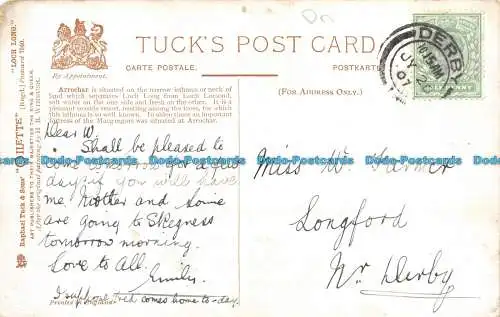 TUCK'S POST CARD
CARTE POSTALE. POSTKARTE.
By Appointment.
(FOR ADDRESS ONLY.)
Arrochar is situated on the narrow isthmus or neck of
land which separates Loch Long from Loch Lomond,
salt water on the one side and fresh on the other. It is a
pleasant tourist resort, nestling among the trees, for which
this isthmus is so well known. In olden times an important
fortress of the Macgregors was situated at Arrochar.
Raphael Tuck & Sons' "OILETTE" [Regd.] Postcard "LOCH LONG."
ART PUBLISHERS TO THE KING & QUEEN.
After the original painting by
Dear W.
Shall be pleased to
come tomorrow for a few
days if you will have
me. Mother and some
are going to Skegness
tomorrow morning.
Love to All.
Emily.
I suppose Fred comes home to-day.
Printed in England.
DERBY
JY 26
07
HALFPENNY
Miss W. Farmer
Longford
Nr. Derby
www.delcampe.net